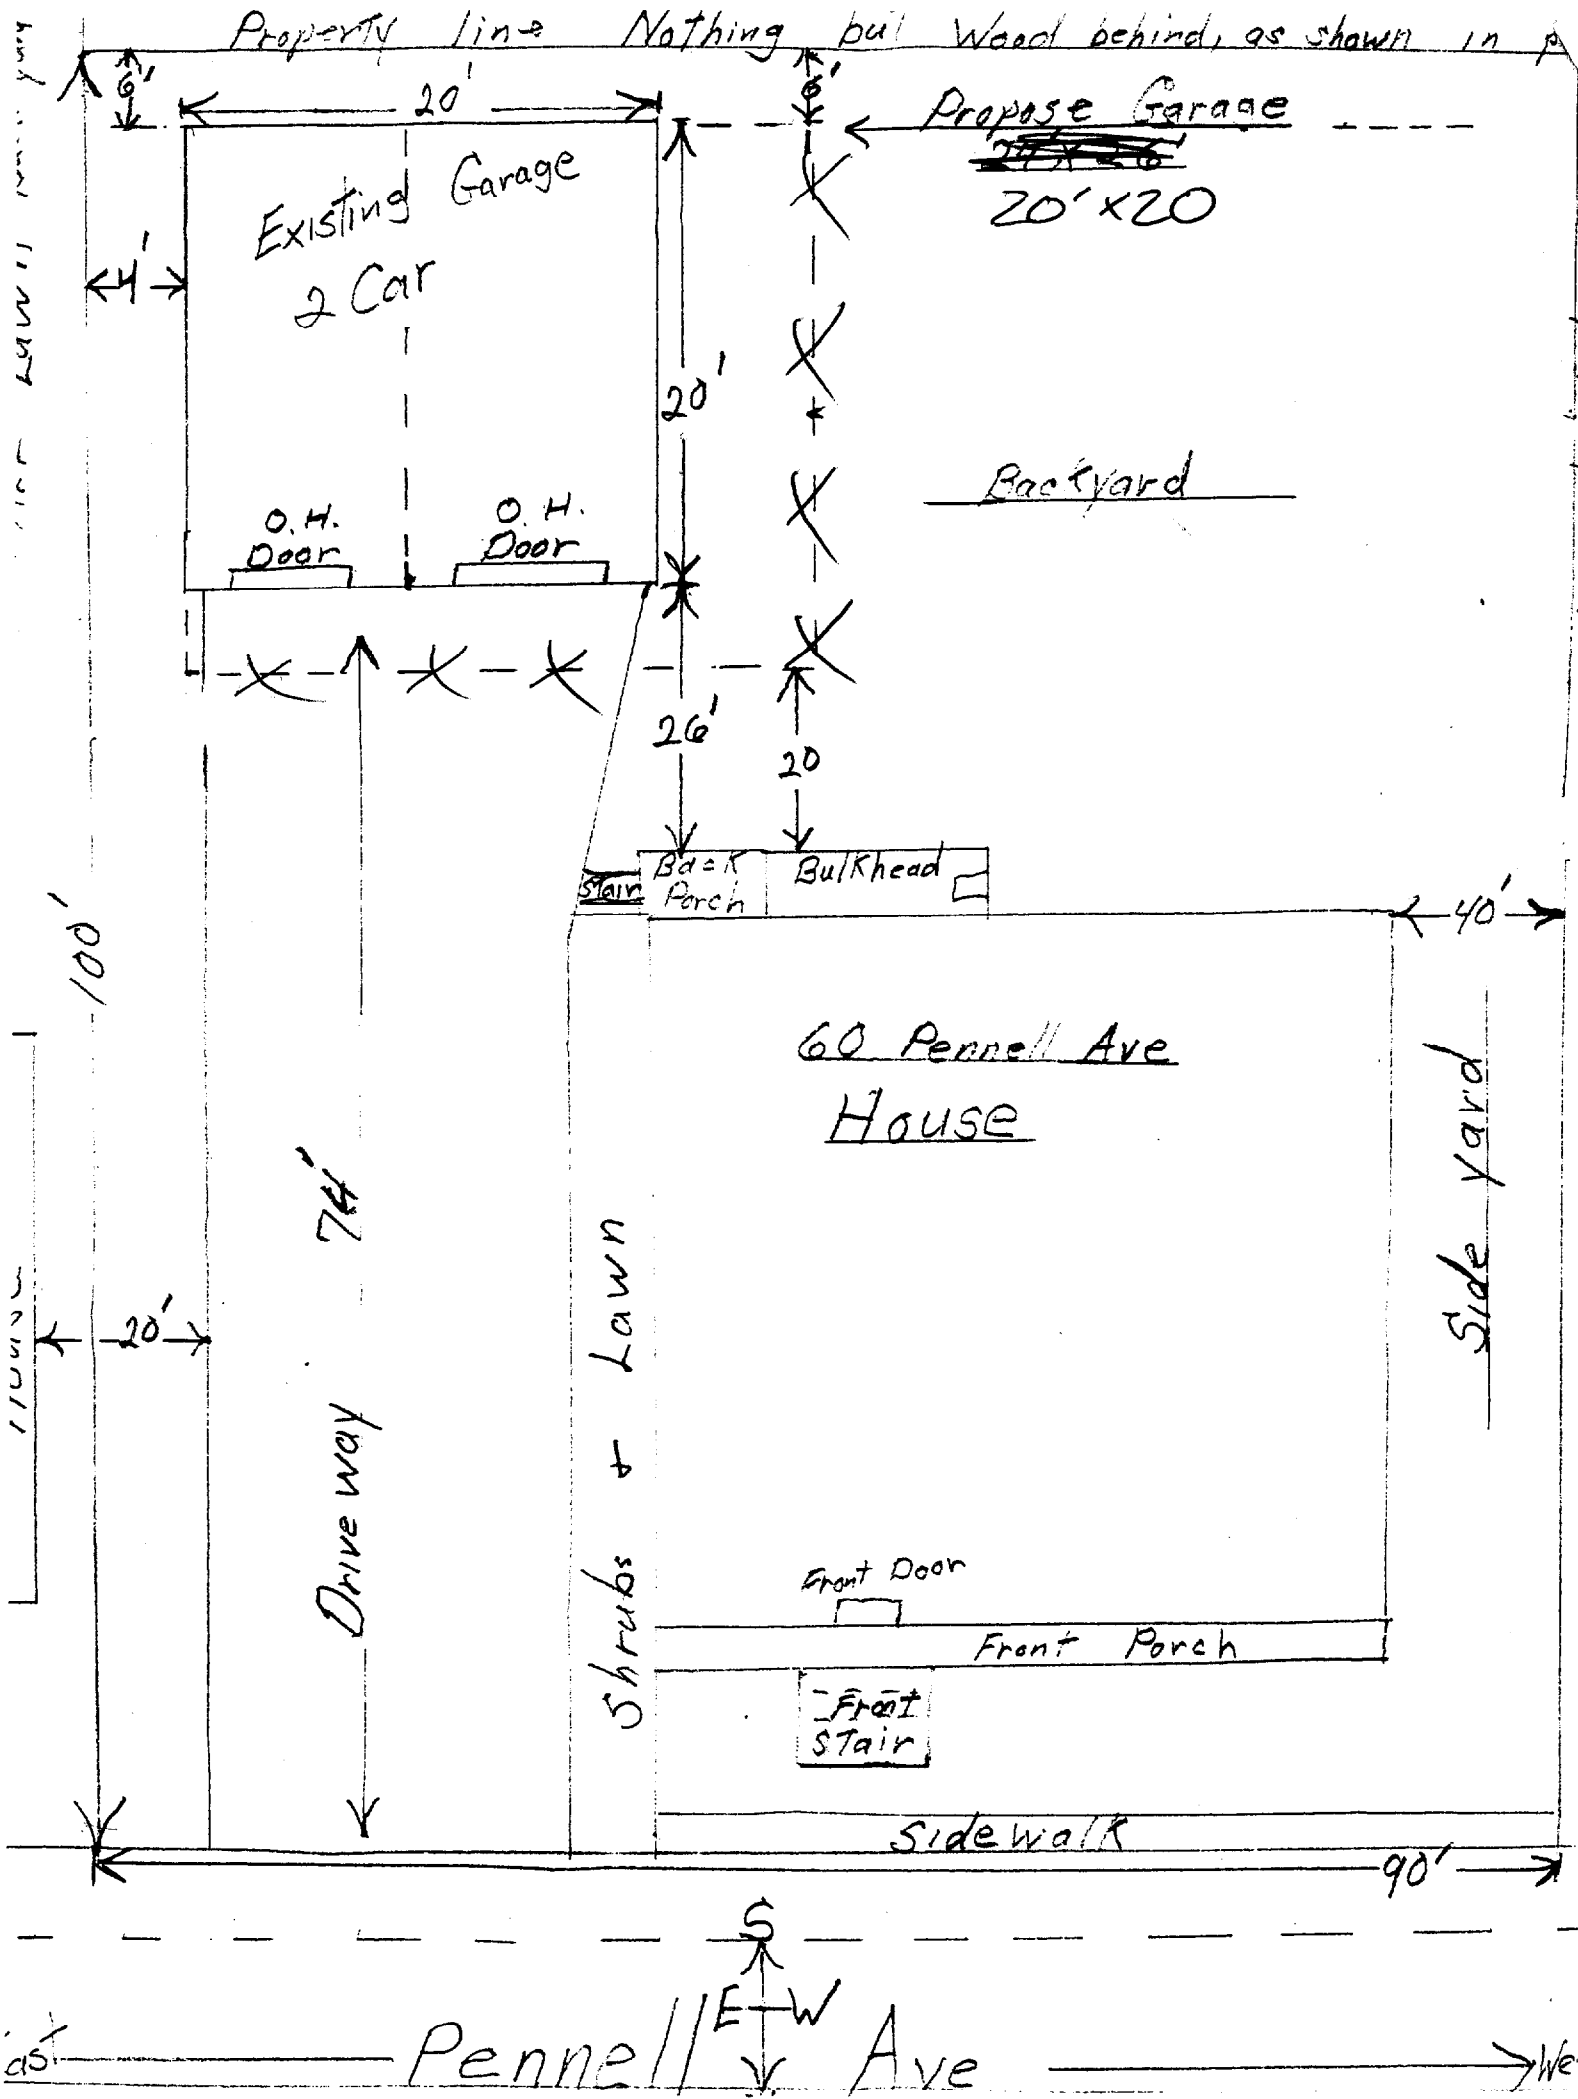 Property line Nothing but Wood behind, as shown in
6'
20'
6'
Propose Garage
24'x26'
20'x20
Existing Garage
2 Car
4'
20'
O.H.
Door
O.H.
Door
Backyard
26'
20
Stair
Back
Porch
Bulkhead
40'
100'
60 Pennell Ave
House
Side yard
74'
Driveway
20'
Shrubs + Lawn
Front Door
Front Porch
Front
Stair
Sidewalk
90'
S
E W
Pennell Ave